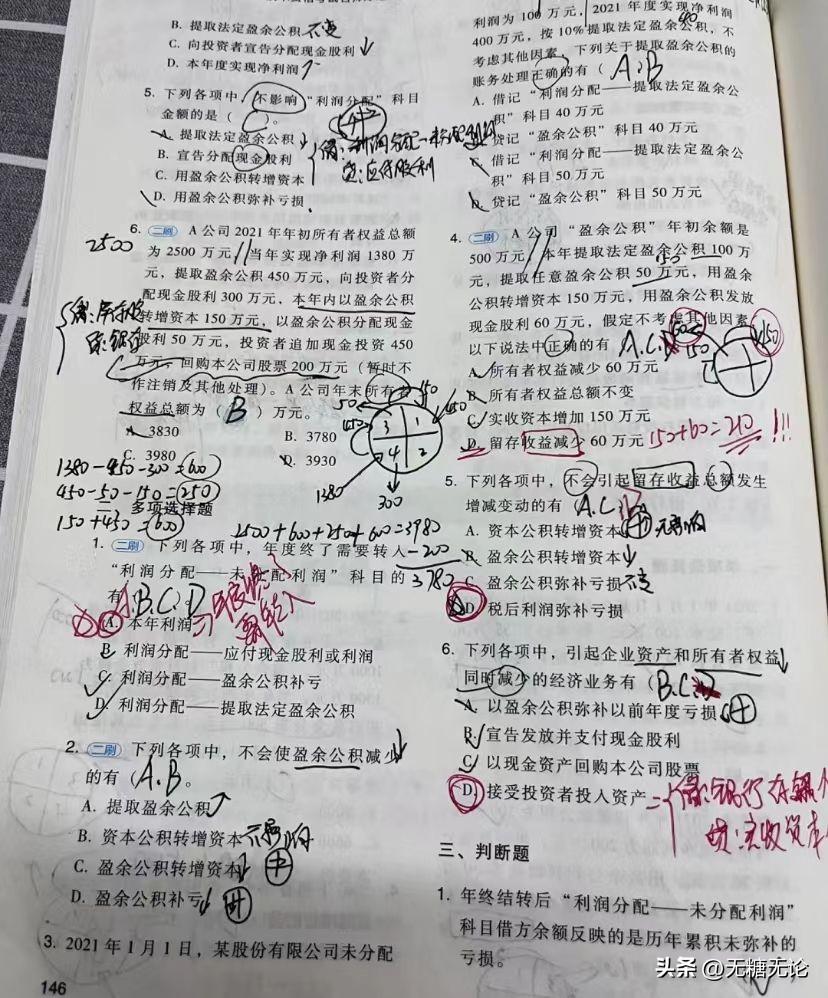 B. 提取法定盈余公积 不变
C. 向投资者宣告分配现金股利↓
D. 本年度实现净利润↑
5. 下列各项中，不影响“利润分配”科目
金额的是（ ）。
A. 提取法定盈余公积
B. 宣告分配现金股利
C. 用盈余公积转增资本
D. 用盈余公积弥补亏损
借:利润分配—未分配利润
贷:应付股利
6. 二刷 A 公司 2021 年年初所有者权益总额
2500
为 2500 万元，当年实现净利润 1380 万
元，提取盈余公积 450 万元，向投资者分
配现金股利 300 万元，本年内以盈余公积
转增资本 150 万元，以盈余公积分配现金
股利 50 万元，投资者追加现金投资 450
万元，回购本公司股票 200 万元（暂时不
作注销及其他处理）。A 公司年末所有者
权益总额为（ B ）万元。
借:库存股
贷:银存
A. 3830
B. 3780
C. 3980
D. 3930
50
150
450
450
3 1
4 2
1380
300
1380-450-300=600
450-50-150=250
150+450=600
2500+600+250+600=3980
-200
3780
二、多项选择题
1. 二刷 下列各项中，年度终了需要转入
“利润分配——未分配利润”科目的
有（A.B.C.D
A. 本年利润
B. 利润分配——应付现金股利或利润
C. 利润分配——盈余公积补亏
D. 利润分配——提取法定盈余公积
2. 二刷 下列各项中，不会使盈余公积减少↓
的有（A.B。
A. 提取盈余公积↑
B. 资本公积转增资本 不影响
C. 盈余公积转增资本↓
D. 盈余公积补亏↓
3. 2021 年 1 月 1 日，某股份有限公司未分配
146
利润为 100 万元，2021 年度实现净利润
400 万元，按 10%提取法定盈余公积，不
40
考虑其他因素，下列关于提取盈余公积的
账务处理正确的有（ A.B
A. 借记“利润分配——提取法定盈余公
积”科目 40 万元
B. 贷记“盈余公积”科目 40 万元
C. 借记“利润分配——提取法定盈余公
积”科目 50 万元
D. 贷记“盈余公积”科目 50 万元
4. 二刷 A 公司“盈余公积”年初余额是
500 万元，本年提取法定盈余公积 100 万
元，提取任意盈余公积 50 万元，用盈余
150
公积转增资本 150 万元，用盈余公积发放
现金股利 60 万元，假定不考虑其他因素，
以下说法中正确的有（ A.C.
60
150
150
A. 所有者权益减少 60 万元
B. 所有者权益总额不变
C. 实收资本增加 150 万元
D. 留存收益减少 60 万元 150+60=210 !!!
5. 下列各项中，不会引起留存收益总额发生
增减变动的有（A.C.
A. 资本公积转增资本 无影响
B. 盈余公积转增资本↓
C. 盈余公积弥补亏损 不变
D. 税后利润弥补亏损
6. 下列各项中，引起企业资产和所有者权益↓
同时减少的经济业务有（B.C.
A. 以盈余公积弥补以前年度亏损
B. 宣告发放并支付现金股利
C. 以现金资产回购本公司股票
D. 接受投资者投入资产
借:银行存款
贷:实收资本
三、判断题
1. 年终结转后“利润分配——未分配利润”
科目借方余额反映的是历年累积未弥补的
亏损。
头条 @无糖无论